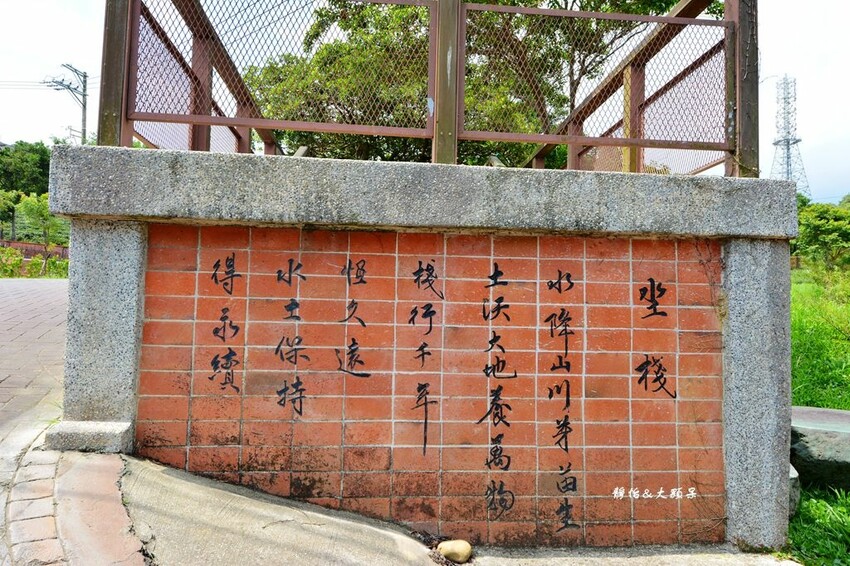 坔棧
水降山川芽苗生
土沃大地養萬物
棧行千年
恆久遠
水土保持
得永續
靜怡&大顆呆